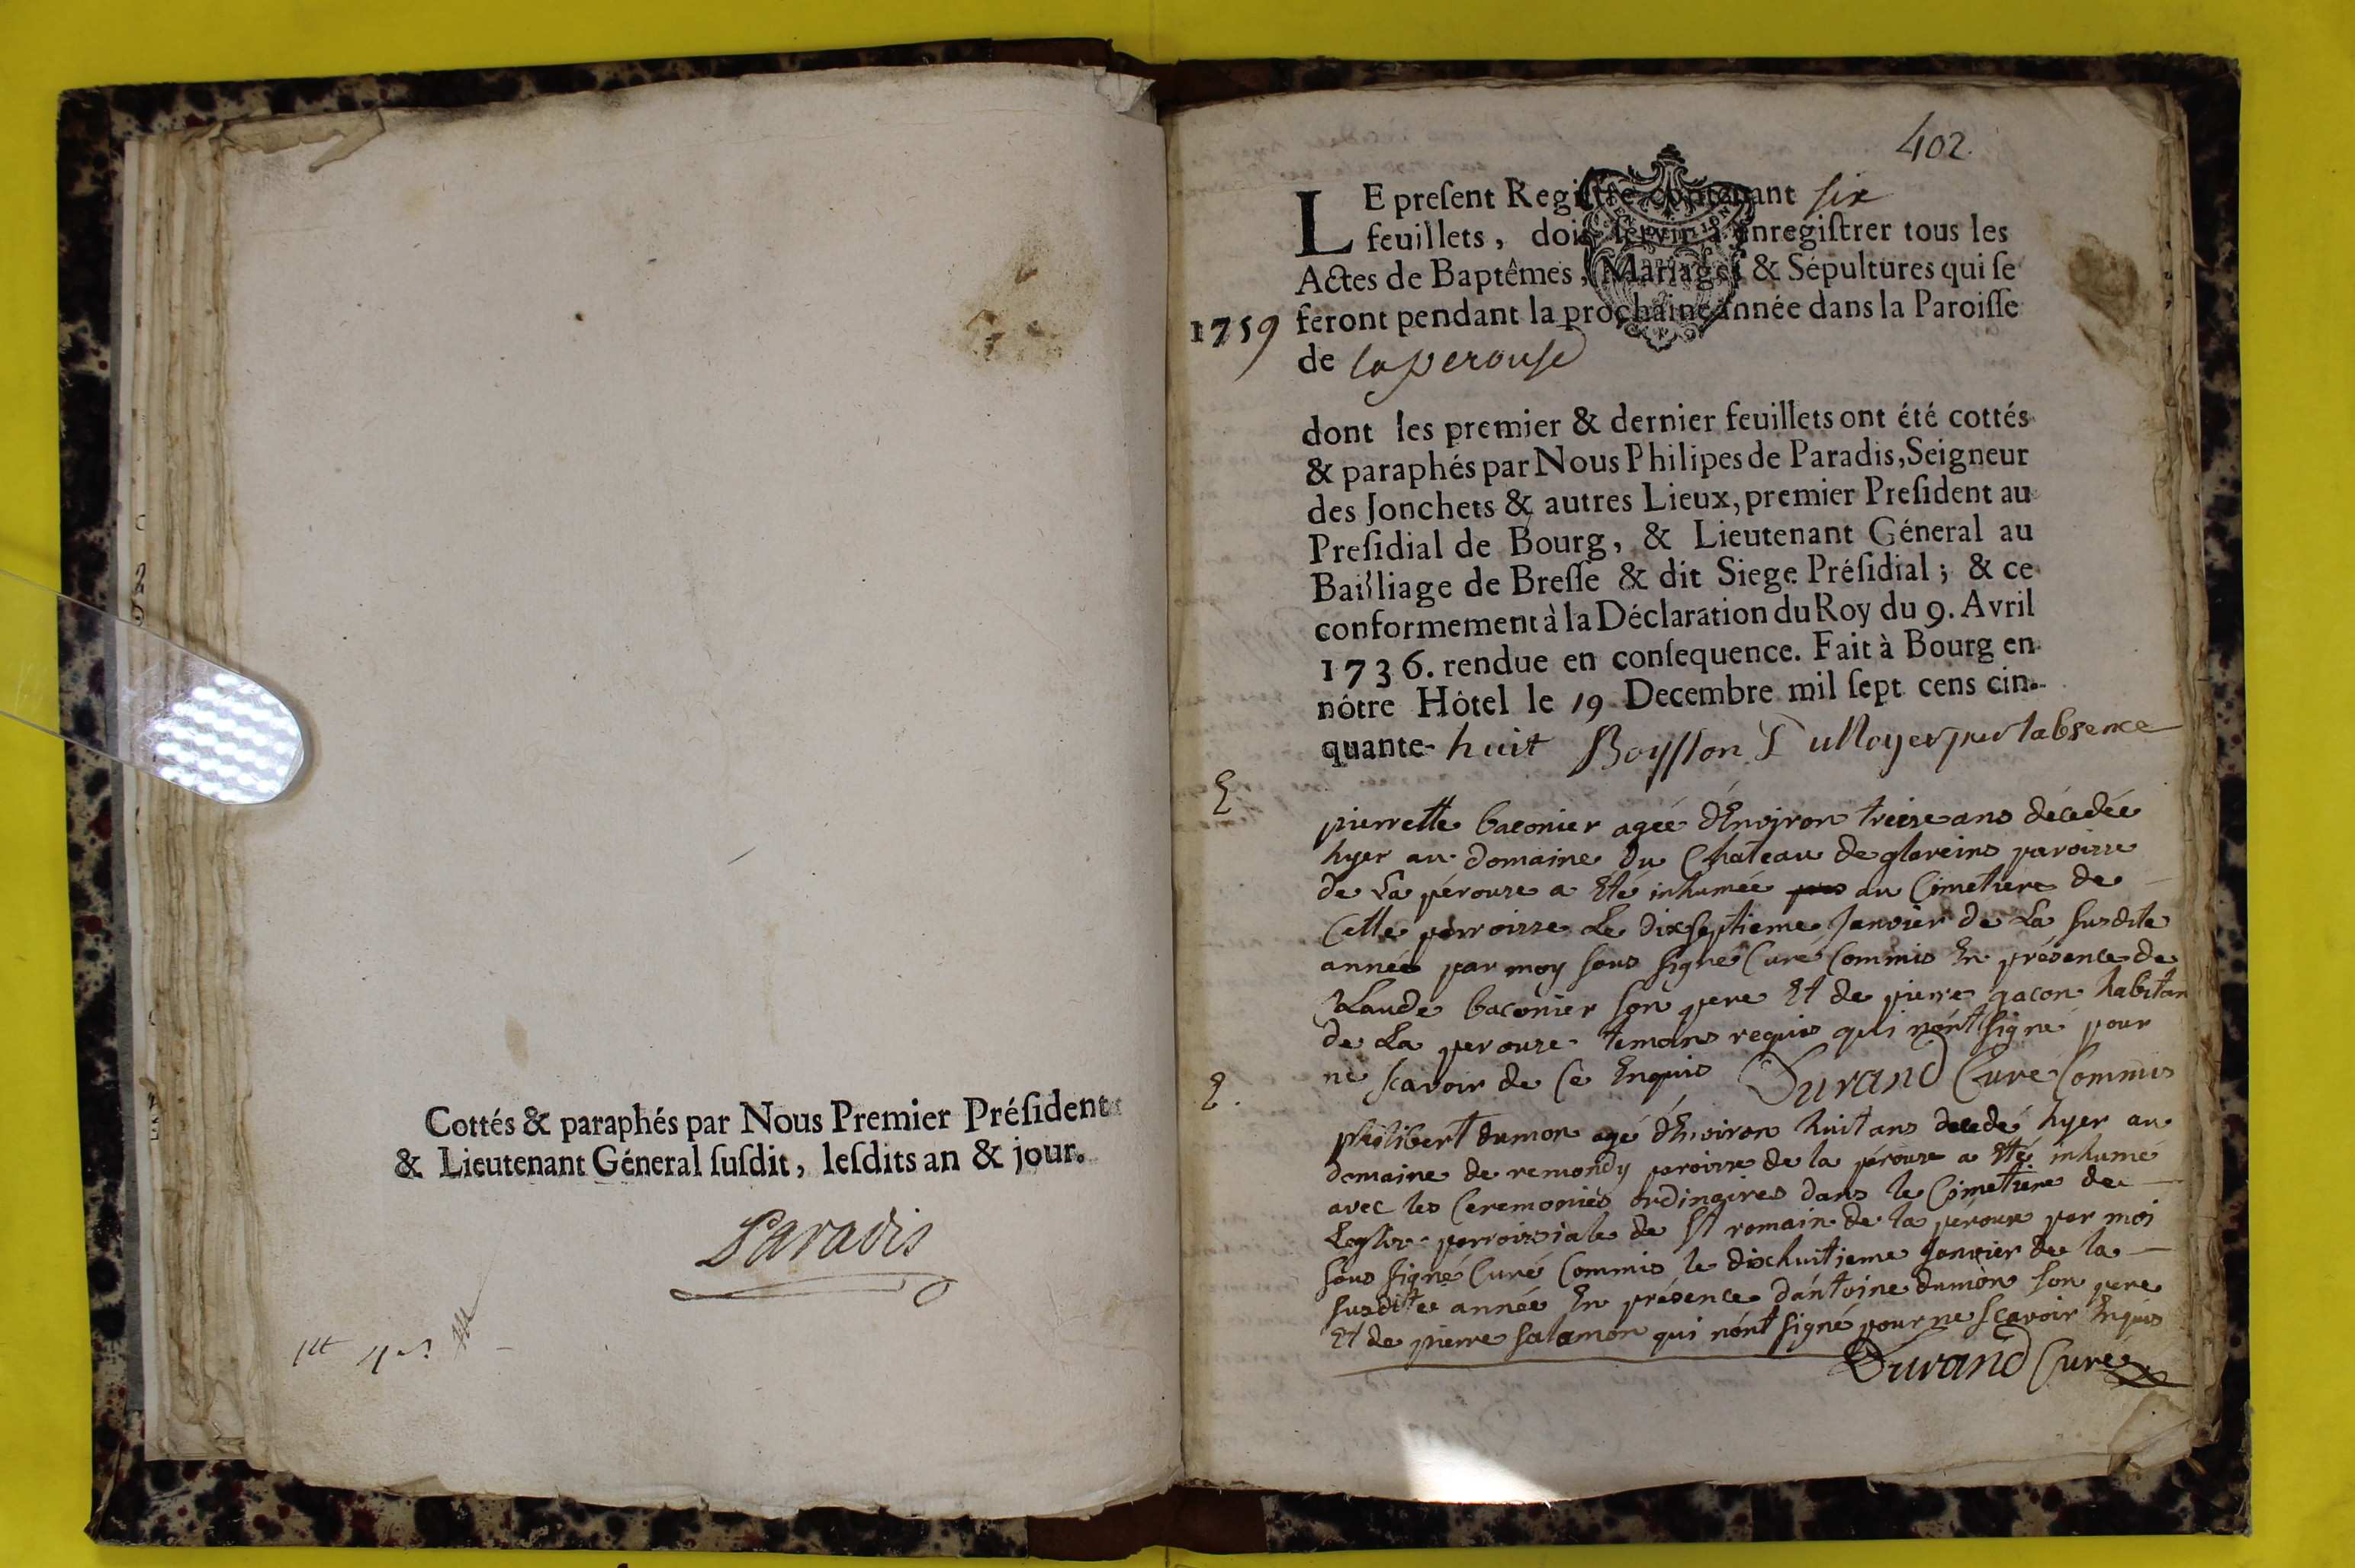 Cottés & paraphés par Nous Premier Préſident
& Lieutenant Géneral ſuſdit, leſdits an & jour.
Paradis
402.
LE preſent Regiſtre contenant six
feuillets, doit ſervir à enregiſtrer tous les
Actes de Baptêmes, Mariages & Sépultures qui ſe
1759 feront pendant la prochaine année dans la Paroiſſe
de laperouse
dont les premier & dernier feuillets ont été cottés
& paraphés par Nous Philipes de Paradis, Seigneur
des Jonchets & autres Lieux, premier Preſident au
Preſidial de Bourg, & Lieutenant Géneral au
Bailliage de Breſſe & dit Siege Préſidial ; & ce
conformement à la Déclaration du Roy du 9. Avril
1736. rendue en conſequence. Fait à Bourg en
nôtre Hôtel le 19 Decembre mil ſept cens cin-
quante- huit l'absence
pierrette baconier agée d'Environ treize ans décedée
hyer au domaine du Chateau de glareins paroisse
de La pérouze a Eté inhumée au Cimetiere de
Cette parroisse Le dixseptieme Janvier de La susdite
année par moy sous signé Curé Commis En présence de
Claude baconier son pere Et de pierre gacon habitan
de La perouze temoins requis qui n'ont signé pour
ne scavoir de Ce Enquis Durand Curé Commis
philibert dumon agé d'Environ huit ans decedé hyer au
domaine de remondy paroisse de la pérouze a Eté inhumé
avec les Ceremonies ordinaires dans le Cimetiere de
L'eglise parroissiale de St romain de la pérouze par moi
sous signé Curé Commis le dixhuitieme Janvier de la
susditte année En présence d'antoine dumon son pere
Et de pierre salamon qui n'ont signé pour ne scavoir Enquis
Durand Curé